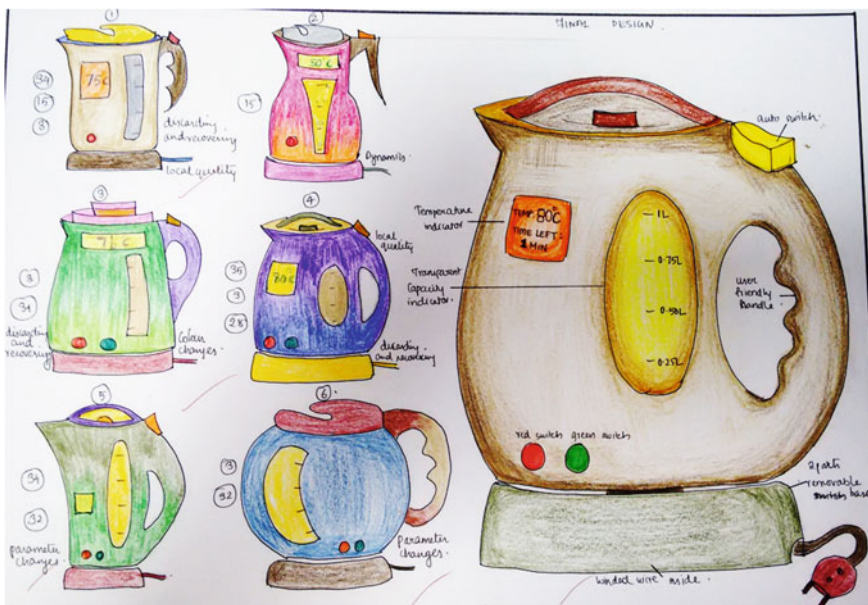 FINAL DESIGN
1
34
15
3
75°C
discarding
and recovering
local quality
2
15
50°C
Dynamics
3
3
34
discarding
and
recovering
Colour
changes
4
35
3
28
80°C
local
quality
discarding
and recovering
5
34
32
parameter
changes
6
3
32
Parameter
changes
auto switch
Temperature
indicator
TEMP: 80°C
TIME LEFT:
1 MIN
Transparent
Capacity
indicator
1L
0.75L
0.50L
0.25L
user
friendly
handle
red switch green switch
2 parts
removable
base
winded wire inside